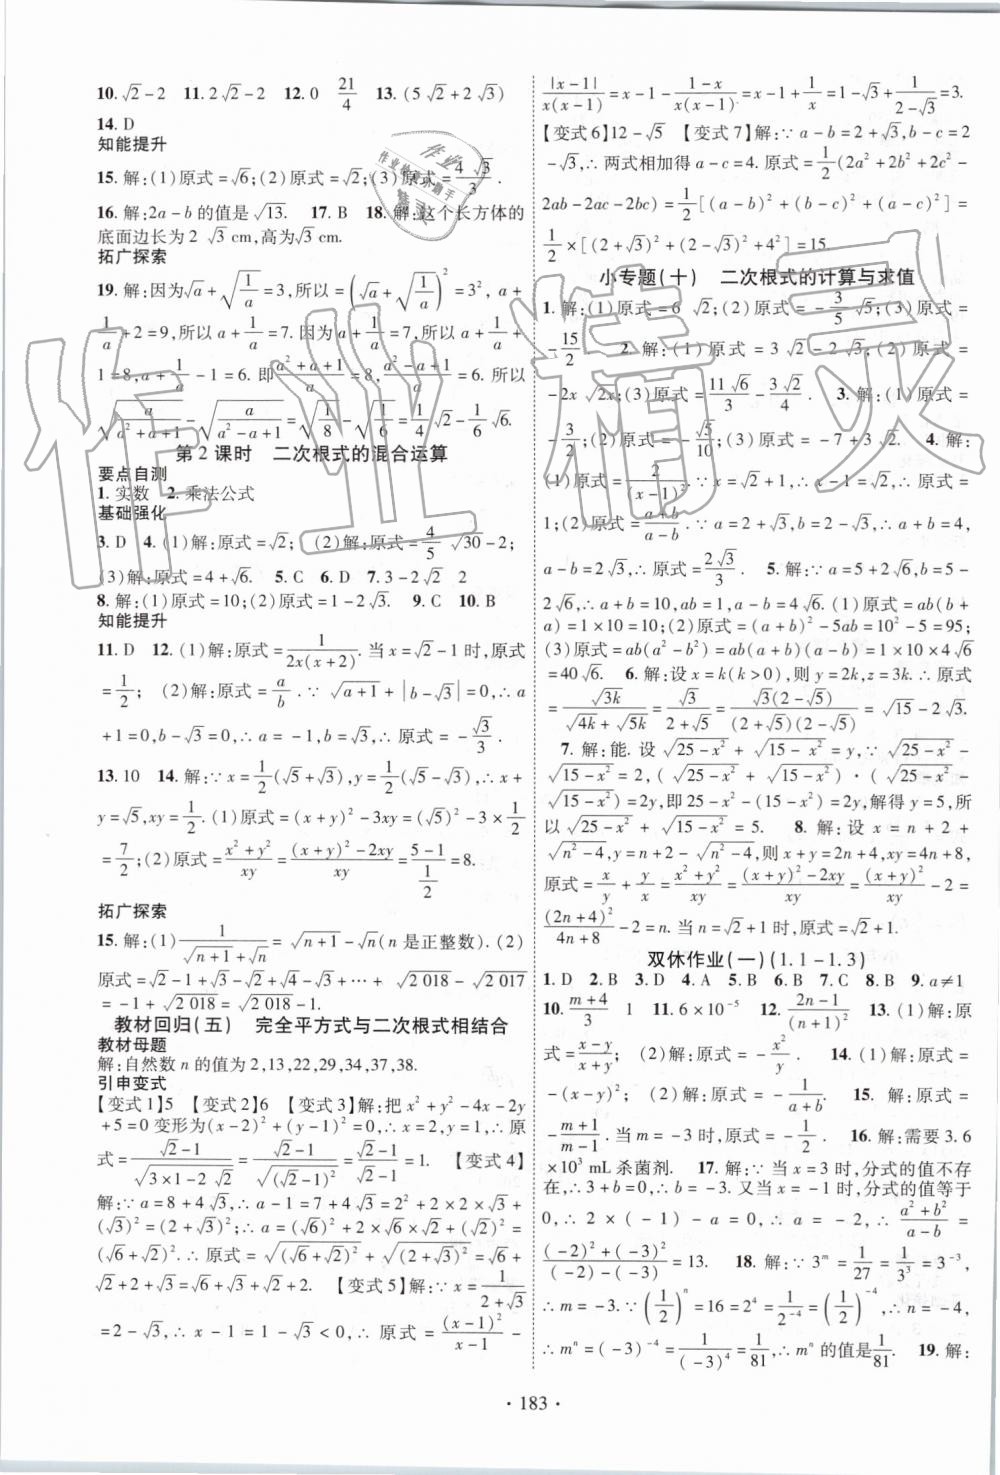 10. √2-2　11. 2√2-2　12. 0　21/4　13. (5√2+2√3)
14. D
知能提升
15. 解:(1)原式=√6;(2)原式=√2;(3)原式=4√3/3.
16. 解:2a-b的值是√13.　17. B　18. 解:这个长方体的
底面边长为2√3 cm,高为√3 cm.
拓广探索
19. 解:因为√a+√(1/a)=3,所以=(√a+√(1/a))²=3², a+
1/a+2=9,所以a+1/a=7. 因为a+1/a=7,所以a+1/a+
1=8,a+1/a-1=6. 即(a²+a+1)/a=8,(a²-a+1)/a=6. 所以
√(a/(a²+a+1))-√(a/(a²-a+1))=√(1/8)-√(1/6)=1/4√2-1/6√6.
第2课时　二次根式的混合运算
要点自测
1. 实数　2. 乘法公式
基础强化
3. D　4. (1)解:原式=√2;　(2)解:原式=4/5√30-2;
(3)解:原式=4+√6.　5. C　6. D　7. 3-2√2　2
8. 解:(1)原式=10;(2)原式=1-2√3.　9. C　10. B
知能提升
11. D　12. (1)解:原式=1/(2x(x+2)). 当x=√2-1时,原式=
1/2;　(2)解:原式=a/b. ∵√(a+1)+|b-√3|=0,∴a
+1=0,b-√3=0,∴a=-1,b=√3,∴原式=-√3/3.
13. 10　14. 解:∵x=1/2(√5+√3),y=1/2(√5-√3),∴x+
y=√5,xy=1/2. (1)原式=(x+y)²-3xy=(√5)²-3×1/2
=7/2;(2)原式=(x²+y²)/xy=((x+y)²-2xy)/xy=(5-1)/(1/2)=8.
拓广探索
15. 解:(1)1/(√(n+1)+√n)=√(n+1)-√n(n是正整数). (2)
原式=√2-1+√3-√2+√4-√3+…+√2 018-√2 017
=-1+√2 018=√2 018-1.
教材回归(五)　完全平方式与二次根式相结合
教材母题
解:自然数n的值为2,13,22,29,34,37,38.
引申变式
【变式1】5　【变式2】6　【变式3】解:把x²+y²-4x-2y
+5=0变形为(x-2)²+(y-1)²=0,∴x=2,y=1,∴原
式=(√2-1)/√(3×1-2√2)=(√2-1)/√((√2-1)²)=(√2-1)/(√2-1)=1.　【变式4】
解:∵a=8+4√3,∴a-1=7+4√3=2²+2×2×√3+
(√3)²=(2+√3)²;∴a=(√6)²+2×√6×√2+(√2)²=
(√6+√2)²,∴原式=√((√6+√2)²)+√((2+√3)²)=√6+
√2+2+√3=√6+√3+√2+2.　【变式5】解:∵x=1/(2+√3)
=2-√3,∴x-1=1-√3<0,∴原式=(x-1)²/(x-1)-
|x-1|/(x(x-1))=x-1-(1-x)/(x(x-1))=x-1+1/x=1-√3+1/(2-√3)=3.
【变式6】12-√5　【变式7】解:∵a-b=2+√3,b-c=2
-√3,∴两式相加得a-c=4. 原式=1/2(2a²+2b²+2c²-
2ab-2ac-2bc)=1/2[(a-b)²+(b-c)²+(a-c)²]=
1/2×[(2+√3)²+(2-√3)²+4²]=15.
小专题(十)　二次根式的计算与求值
1. 解:(1)原式=6√2;(2)原式=-3/5√5;(3)原式=
-15/2.　2. 解:(1)原式=3√2-2√3;(2)原式=
-2x√2x;(3)原式=11√6/3-3√2/4.　3. 解:(1)原式=
-3/2;(2)原式=-√5/10;(3)原式=-7+3√2.　4. 解:
(1)原式=2/(x-1)². ∵x=√2+1,∴x-1=√2,∴原式=
1;(2)原式=(a+b)/(a-b). ∵a=2+√3,b=2-√3,∴a+b=4,
a-b=2√3,∴原式=2√3/3.　5. 解:∵a=5+2√6,b=5-
2√6,∴a+b=10,ab=1,a-b=4√6. (1)原式=ab(b+
a)=1×10=10;(2)原式=(a+b)²-5ab=10²-5=95;
(3)原式=ab(a²-b²)=ab(a+b)(a-b)=1×10×4√6
=40√6.　6. 解:设x=k(k>0),则y=2k,z=3k. ∴原式
=√3k/(√4k+√5k)=√3/(2+√5)=√3(2-√5)/((2+√5)(2-√5))=√15-2√3.
7. 解:能. 设√(25-x²)+√(15-x²)=y,∵√(25-x²)-
√(15-x²)=2,∴(√(25-x²)+√(15-x²))·(√(25-x²)-
√(15-x²))=2y,即25-x²-(15-x²)=2y,解得y=5,所
以√(25-x²)+√(15-x²)=5.　8. 解:设x=n+2+
√(n²-4),y=n+2-√(n²-4),则x+y=2n+4,xy=4n+8,
原式=x/y+y/x=(x²+y²)/xy=((x+y)²-2xy)/xy=(x+y)²/xy-2=
(2n+4)²/(4n+8)-2=n. 当n=√2+1时,原式=√2+1.
双休作业(一)(1.1-1.3)
1. D　2. B　3. D　4. A　5. B　6. B　7. C　8. B　9. a≠1
10. (m+4)/3　1　11. 6×10⁻⁵　12. (2n-1)/(n+1)²　13. (1)解:原
式=(x-y)/(x+y);　(2)解:原式=-x²/y.　14. (1)解:原式=
-(x-2);　(2)解:原式=-1/(a+b).　15. 解:原式=
-(m+1)/(m-1). 当m=-3时,原式=-1/2.　16. 解:需要3.6
×10³ mL杀菌剂.　17. 解:∵当x=3时,分式的值不存
在,∴3+b=0,∴b=-3. 又当x=-1时,分式的值等于
0,∴2×(-1)-a=0,∴a=-2,∴(a²+b²)/(a-b)=
((-2)²+(-3)²)/((-2)-(-3))=13.　18. 解:∵3ᵐ=1/27=1/3³=3⁻³
∴m=-3. ∵(1/2)ⁿ=16=2⁴=1/2⁻⁴=(1/2)⁻⁴,∴n=-4,
∴mⁿ=(-3)⁻⁴=1/(-3)⁴=1/81,∴mⁿ的值是1/81.　19. 解:
·183·
作业精灵